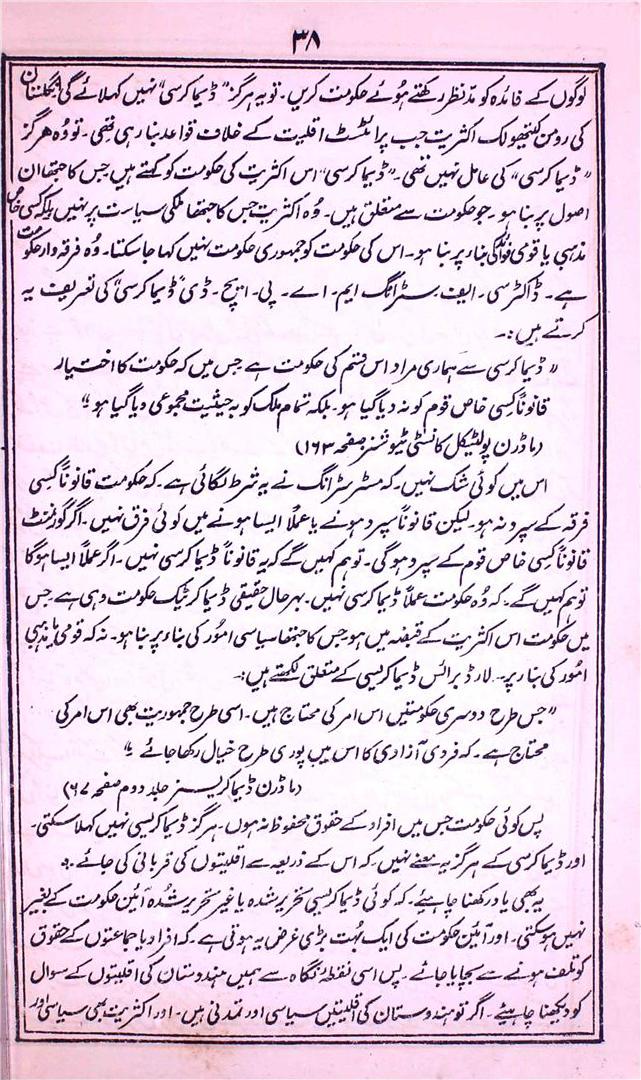 ۳۸
لوگوں کے فائدہ کو مدّنظر رکھتے ہوُئے حکومت کریں۔ تو یہ ہرگز "ڈیماکرسی" نہیں کہلائے گی۔ انگلستان
کی رومن کیتھولک اکثریت جب پراٹسٹنٹ اقلیت کے خلاف قواعد بنا رہی تھی۔ تو وُہ ہرگز
"ڈیماکرسی" کی عامل نہیں تھی۔ "ڈیماکرسی" اس اکثریت کی حکومت کو کہتے ہیں جس کا جتھا ان
اصول پر بنا ہو۔ جو حکومت سے متعلق ہیں۔ وُہ اکثریت جس کا جتھا ملکی سیاست پر نہیں بلکہ کسی خاص
مذہبی یا قومی فوائد کی بناء پر بنا ہو۔ اس کی حکومت کو جمہوری حکومت نہیں کہا جا سکتا۔ وُہ فرقہ وار حکومت
ہے۔ ڈاکٹر سی۔ ایف۔ سٹرانگ ایم۔ اے۔ پی۔ ایچ۔ ڈی "ڈیماکرسی" کی تعریف یہ
کرتے ہیں:۔
"ڈیماکرسی سے ہماری مراد اس قسم کی حکومت ہے جس میں کہ حکومت کا اختیار
قانوناً کسِی خاص قوم کو نہ دیا گیا ہو۔ بلکہ تمام ملک کو بہ حیثیت مجموعی دیا گیا ہو۔"
(ماڈرن پولٹیکل کانسٹی ٹیوشنز صفحہ ۱۶۳)
اس میں کوئی شک نہیں۔ کہ مسٹر سٹرانگ نے یہ شرط لگائی ہے۔ کہ حکومت قانوناً کسِی
فرقہ کے سپرد نہ ہو۔ لیکن قانوناً سپرد ہونے یا عملاً ایسا ہونے میں کوئی فرق نہیں۔ اگر گورنمنٹ
قانوناً کسِی خاص قوم کے سپرد ہو گی۔ تو ہم کہیں گے کہ یہ قانوناً ڈیماکرسی نہیں۔ اگر عملاً ایسا ہو گا
تو ہم کہیں گے۔ کہ وُہ حکومت عملاً ڈیماکرسی نہیں۔ بہرحال حقیقی ڈیماکریٹک حکومت وہی ہے جس
میں حکومت اس اکثریت کے قبضہ میں ہو جس کا جتھا سیاسی امور کی بناء پر بنا ہو۔ نہ کہ قومی یا مذہبی
امور کی بناء پر۔ لارڈ برائس ڈیماکریسی کے متعلق لکھتے ہیں:۔
"جس طرح دوسری حکومتیں اس امر کی محتاج ہیں۔ اسی طرح جمہوریت بھی اس امر کی
محتاج ہے۔ کہ فردی آزادی کا اس میں پوری طرح خیال رکھا جائے۔"
(ماڈرن ڈیماکریسیز جلد دوم صفحہ ۶۷)
پس کوئی حکومت جس میں افراد کے حقوق محفوظ نہ ہوں۔ ہرگز ڈیماکریسی نہیں کہلا سکتی۔
اور ڈیماکرسی کے ہرگز یہ معنے نہیں۔ کہ اس کے ذریعہ سے اقلیتوں کی قربانی کی جائے۔
یہ بھی یاد رکھنا چاہیئے۔ کہ کوئی ڈیماکریسی تحریر شدہ یا غیر تحریر شُدہ آئین حکومت کے بغیر
نہیں ہو سکتی۔ اور آئین حکومت کی ایک بُہت بڑی غرض یہ ہوتی ہے۔ کہ افراد یا جماعتوں کے حقوق
کو تلف ہونے سے بچایا جائے۔ پس اسی نقطۂ نگاہ سے ہمیں ہندوستان کی اقلیتوں کے سوال
کو دیکھنا چاہیئے۔ اگر تو ہندوستان کی اقلیتیں سیاسی اور تمدنی ہیں۔ اور اکثریت بھی سیاسی اور